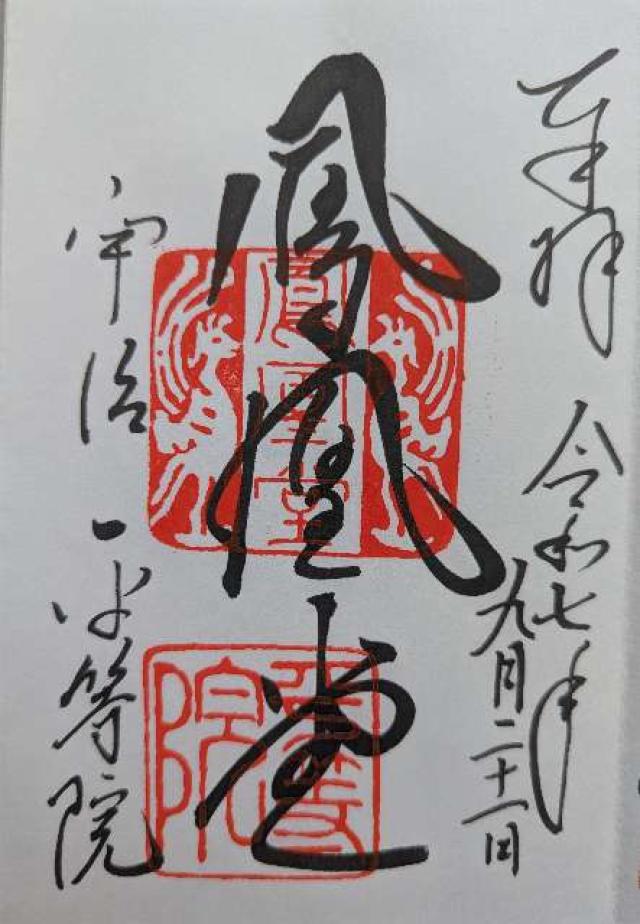 奉拝 令和七年
九月二十一日
鳳凰堂
鳳凰堂
平等院
宇治 平等院